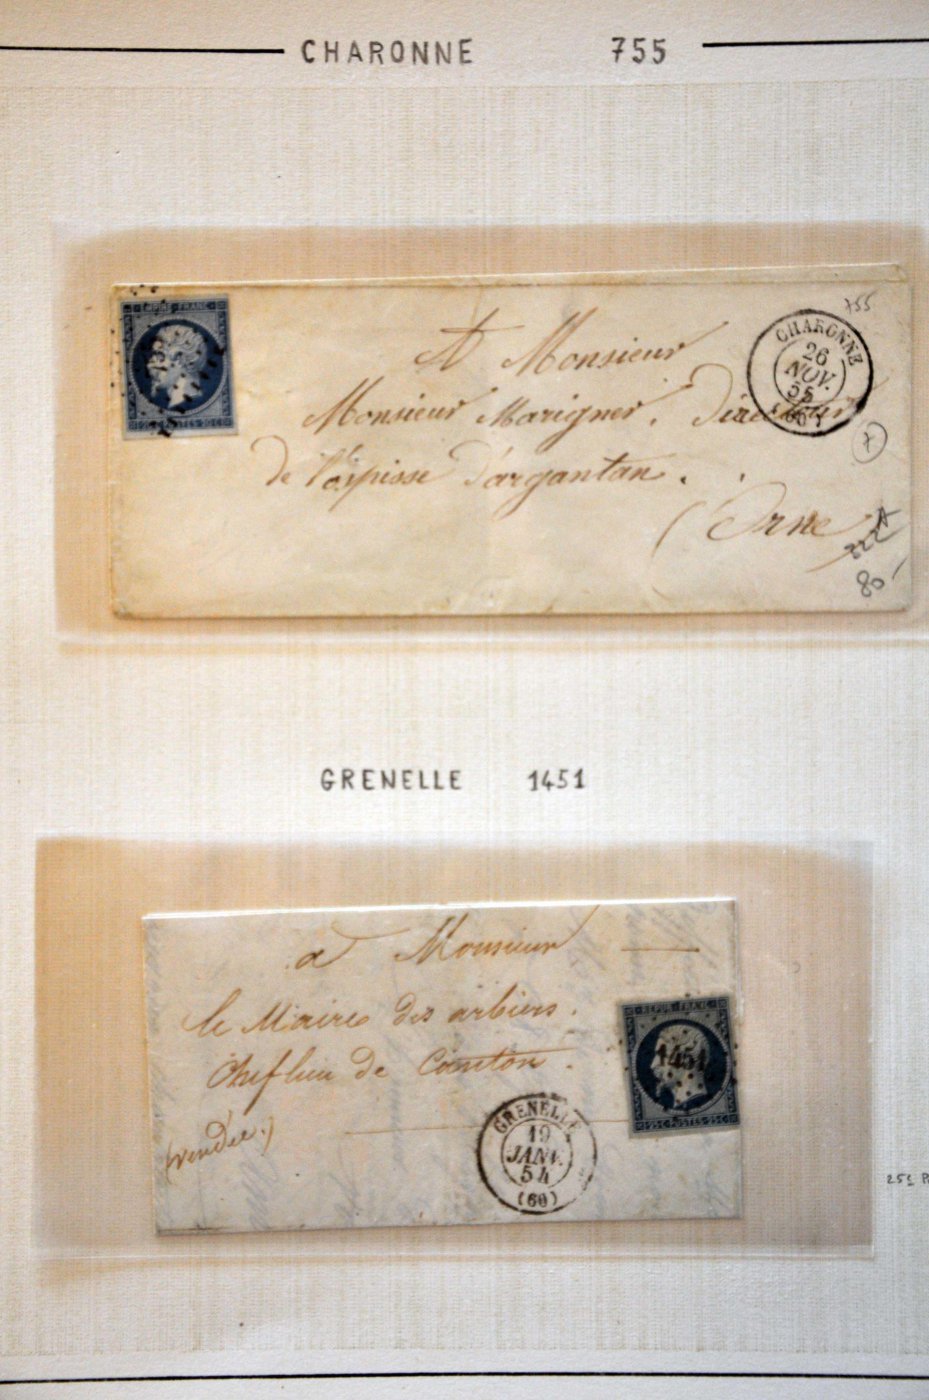 CHARONNE 755
EMPIRE FRANC
755
20 C POSTES 20 C
755
CHARONNE
26
NOV.
55
(60)
A Monsieur
Monsieur Marigner, Directeur
De d'argantan.
(Orne
7
222A
80
GRENELLE 1451
a Monsieur
le Maire des arbiers.
Chef lieu de Canton.
(vendée.)
REPUB FRANC
1451
25 C POSTES 25 C
GRENELLE
19
JANV.
54
(60)
25c